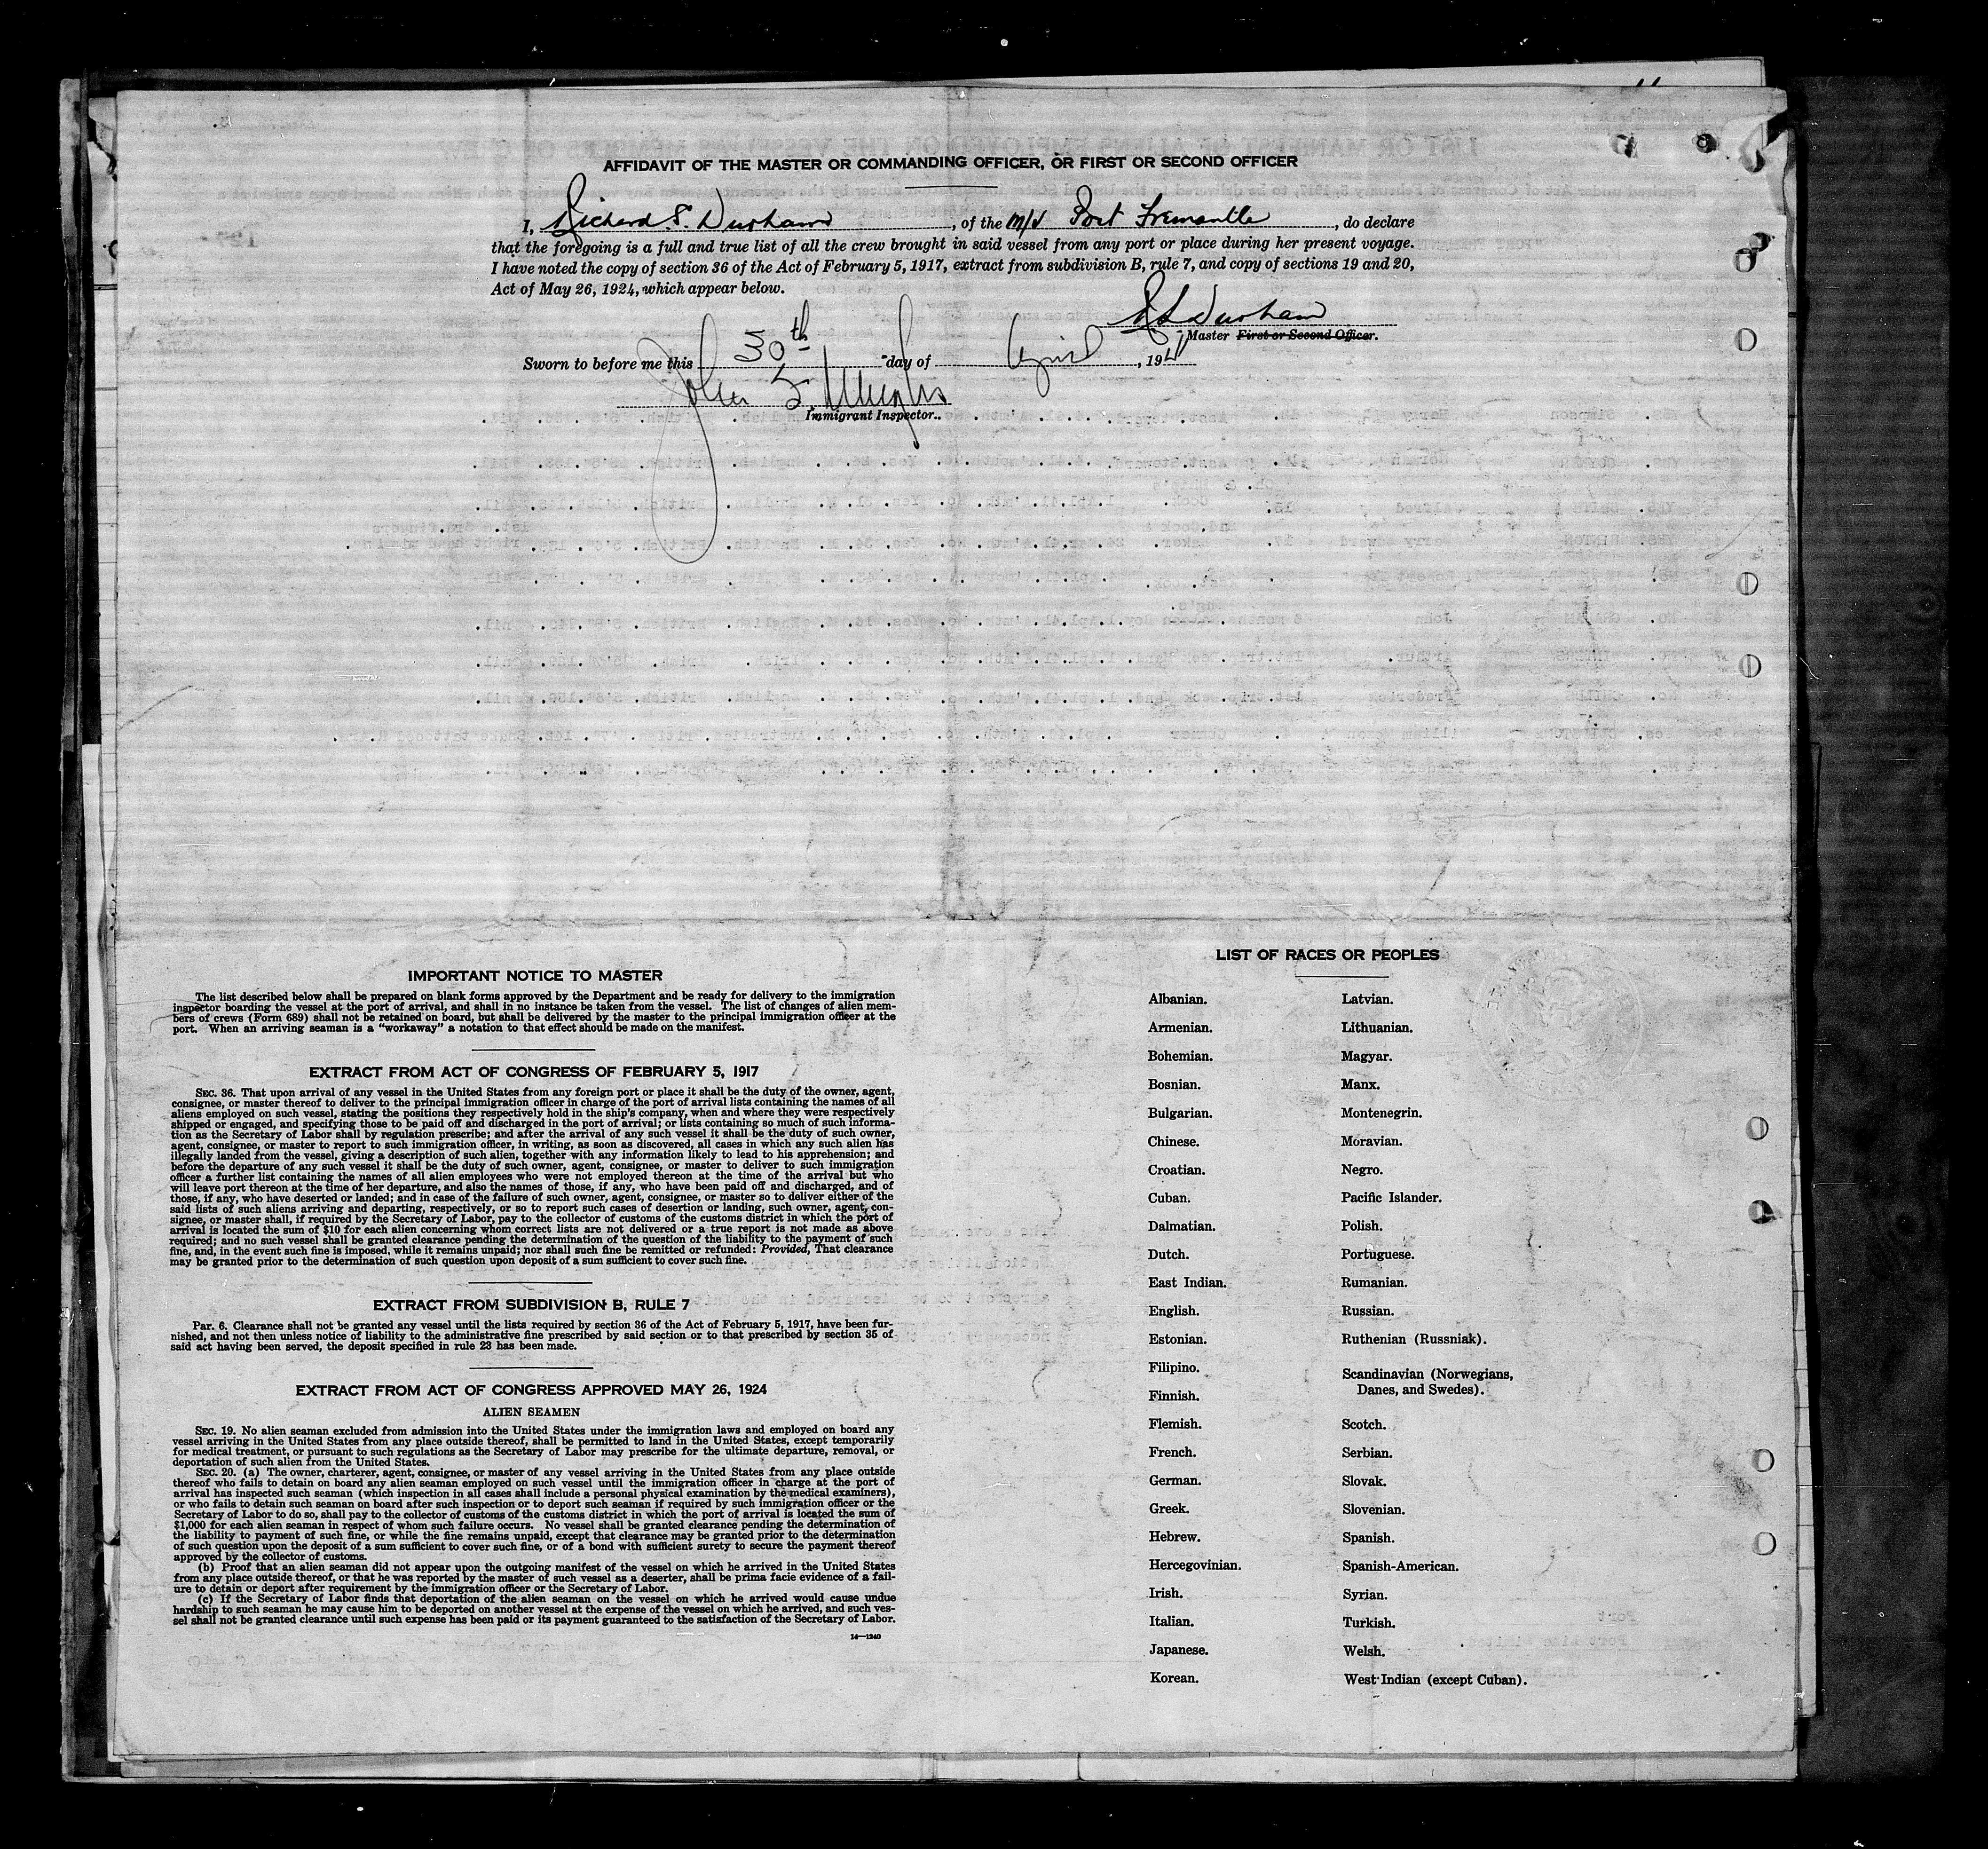 AFFIDAVIT OF THE MASTER OR COMMANDING OFFICER, OR FIRST OR SECOND OFFICER
I, Richard S. Durham, of the M/V Port Fremantle, do declare
that the foregoing is a full and true list of all the crew brought in said vessel from any port or place during her present voyage.
I have noted the copy of section 36 of the Act of February 5, 1917, extract from subdivision B, rule 7, and copy of sections 19 and 20,
Act of May 26, 1924, which appear below.
RS Durham
Master First or Second Officer.
Sworn to before me this 30th day of April, 1941
John
Immigrant Inspector.
IMPORTANT NOTICE TO MASTER
The list described below shall be prepared on blank forms approved by the Department and be ready for delivery to the immigration
inspector boarding the vessel at the port of arrival, and shall in no instance be taken from the vessel. The list of changes of alien mem-
bers of crews (Form 689) shall not be retained on board, but shall be delivered by the master to the principal immigration officer at the
port. When an arriving seaman is a "workaway" a notation to that effect should be made on the manifest.
EXTRACT FROM ACT OF CONGRESS OF FEBRUARY 5, 1917
SEC. 36. That upon arrival of any vessel in the United States from any foreign port or place it shall be the duty of the owner, agent,
consignee, or master thereof to deliver to the principal immigration officer in charge of the port of arrival lists containing the names of all
aliens employed on such vessel, stating the positions they respectively hold in the ship's company, when and where they were respectively
shipped or engaged, and specifying those to be paid off and discharged in the port of arrival; or lists containing so much of such informa-
tion as the Secretary of Labor shall by regulation prescribe; and after the arrival of any such vessel it shall be the duty of such owner,
agent, consignee, or master to report to such immigration officer, in writing, as soon as discovered, all cases in which any such alien has
illegally landed from the vessel, giving a description of such alien, together with any information likely to lead to his apprehension; and
before the departure of any such vessel it shall be the duty of such owner, agent, consignee, or master to deliver to such immigration
officer a further list containing the names of all alien employees who were not employed thereon at the time of the arrival but who
will leave port thereon at the time of her departure, and also the names of those, if any, who have been paid off and discharged, and of
those, if any, who have deserted or landed; and in case of the failure of such owner, agent, consignee, or master so to deliver either of the
said lists of such aliens arriving and departing, respectively, or so to report such cases of desertion or landing, such owner, agent, con-
signee, or master shall, if required by the Secretary of Labor, pay to the collector of customs of the customs district in which the port of
arrival is located the sum of $10 for each alien concerning whom correct lists are not delivered or a true report is not made as above
required; and no such vessel shall be granted clearance pending the determination of the question of the liability to the payment of such
fine, and, in the event such fine is imposed, while it remains unpaid; nor shall such fine be remitted or refunded: Provided, That clearance
may be granted prior to the determination of such question upon deposit of a sum sufficient to cover such fine.
EXTRACT FROM SUBDIVISION B, RULE 7
Par. 6. Clearance shall not be granted any vessel until the lists required by section 36 of the Act of February 5, 1917, have been fur-
nished, and not then unless notice of liability to the administrative fine prescribed by said section or to that prescribed by section 35 of
said act having been served, the deposit specified in rule 23 has been made.
EXTRACT FROM ACT OF CONGRESS APPROVED MAY 26, 1924
ALIEN SEAMEN
SEC. 19. No alien seaman excluded from admission into the United States under the immigration laws and employed on board any
vessel arriving in the United States from any place outside thereof, shall be permitted to land in the United States, except temporarily
for medical treatment, or pursuant to such regulations as the Secretary of Labor may prescribe for the ultimate departure, removal, or
deportation of such alien from the United States.
SEC. 20. (a) The owner, charterer, agent, consignee, or master of any vessel arriving in the United States from any place outside
thereof who fails to detain on board any alien seaman employed on such vessel until the immigration officer in charge at the port of
arrival has inspected such seaman (which inspection in all cases shall include a personal physical examination by the medical examiners),
or who fails to detain such seaman on board after such inspection or to deport such seaman if required by such immigration officer or the
Secretary of Labor to do so, shall pay to the collector of customs of the customs district in which the port of arrival is located the sum of
$1,000 for each alien seaman in respect of whom such failure occurs. No vessel shall be granted clearance pending the determination of
the liability to payment of such fine, or while the fine remains unpaid, except that clearance may be granted prior to the determination
of such question upon the deposit of a sum sufficient to cover such fine, or of a bond with sufficient surety to secure the payment thereof
approved by the collector of customs.
(b) Proof that an alien seaman did not appear upon the outgoing manifest of the vessel on which he arrived in the United States
from any place outside thereof, or that he was reported by the master of such vessel as a deserter, shall be prima facie evidence of a fail-
ure to detain or deport after requirement by the immigration officer or the Secretary of Labor.
(c) If the Secretary of Labor finds that deportation of the alien seaman on the vessel on which he arrived would cause undue
hardship to such seaman he may cause him to be deported on another vessel at the expense of the vessel on which he arrived, and such ves-
sel shall not be granted clearance until such expense has been paid or its payment guaranteed to the satisfaction of the Secretary of Labor.
14—1240
LIST OF RACES OR PEOPLES
Albanian.
Armenian.
Bohemian.
Bosnian.
Bulgarian.
Chinese.
Croatian.
Cuban.
Dalmatian.
Dutch.
East Indian.
English.
Estonian.
Filipino.
Finnish.
Flemish.
French.
German.
Greek.
Hebrew.
Hercegovinian.
Irish.
Italian.
Japanese.
Korean.
Latvian.
Lithuanian.
Magyar.
Manx.
Montenegrin.
Moravian.
Negro.
Pacific Islander.
Polish.
Portuguese.
Rumanian.
Russian.
Ruthenian (Russniak).
Scandinavian (Norwegians,
Danes, and Swedes).
Scotch.
Serbian.
Slovak.
Slovenian.
Spanish.
Spanish-American.
Syrian.
Turkish.
Welsh.
West Indian (except Cuban).